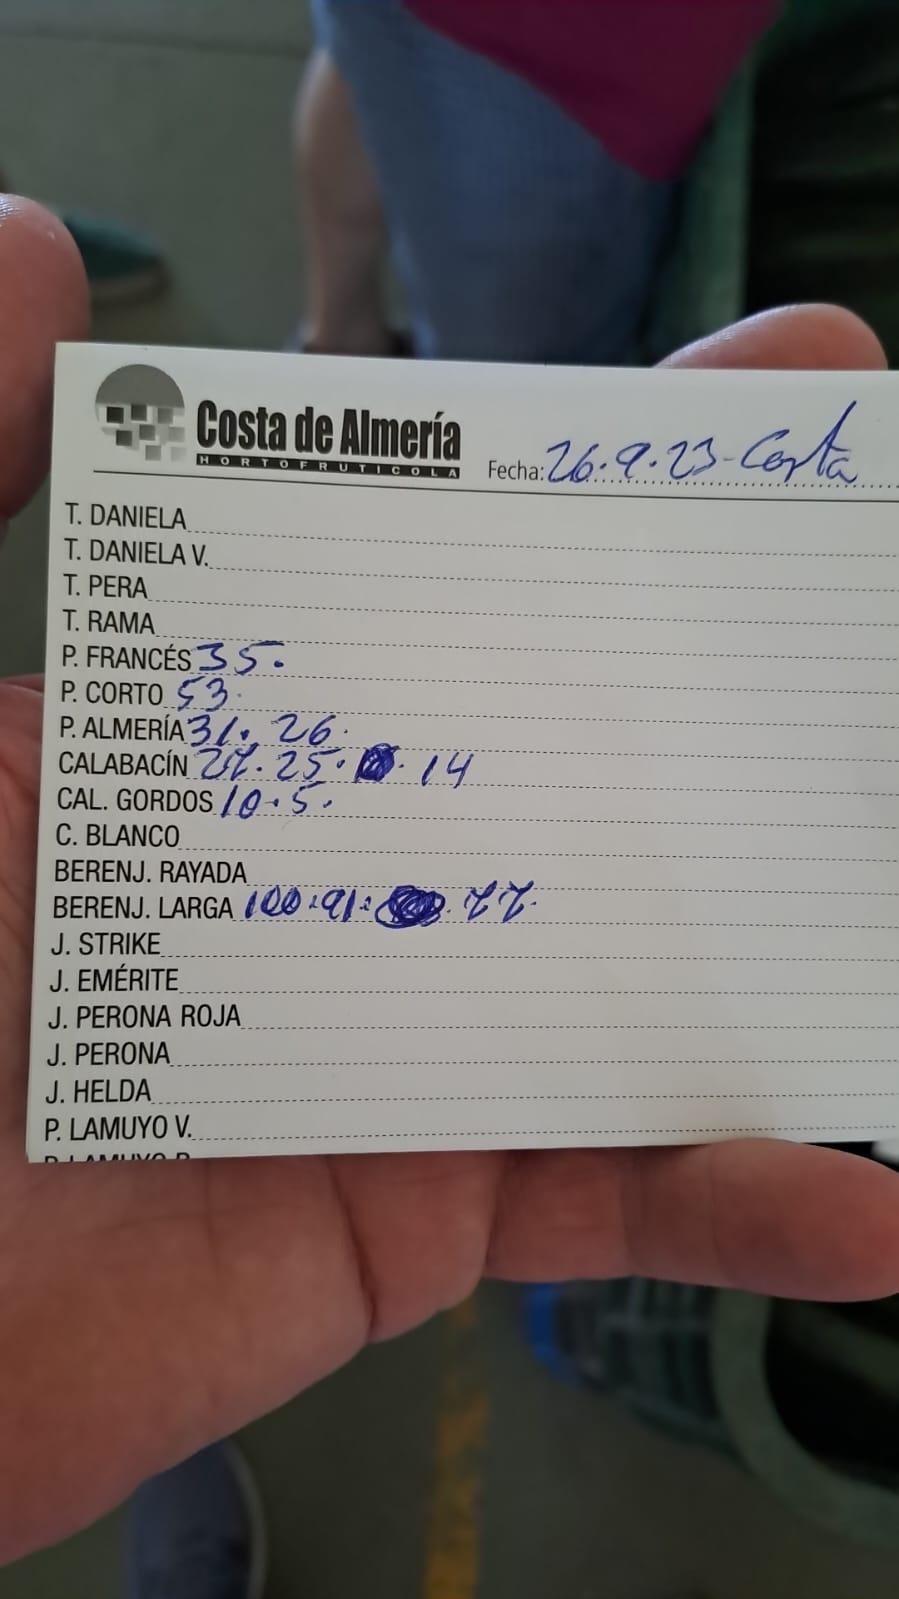 Costa de Almería
HORTOFRUTICOLA
Fecha: 26.9.23-Costa
T. DANIELA
T. DANIELA V.
T. PERA
T. RAMA
P. FRANCÉS 35.
P. CORTO 53.
P. ALMERÍA 31. 26.
CALABACÍN 27. 25. . 14
CAL. GORDOS 10. 5.
C. BLANCO
BERENJ. RAYADA
BERENJ. LARGA 100.91. . 77.
J. STRIKE
J. EMÉRITE
J. PERONA ROJA
J. PERONA
J. HELDA
P. LAMUYO V.